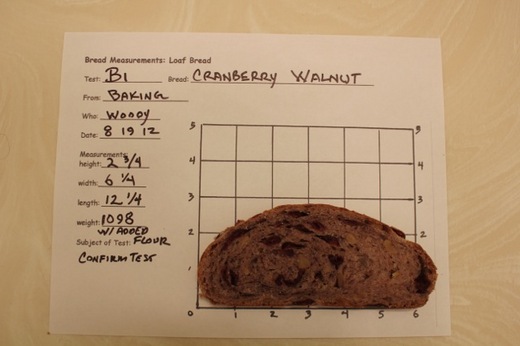 Bread Measurements: Loaf Bread
Test: B1 Bread: CRANBERRY WALNUT
From: BAKING
Who: WOODY
Date: 8 19 12
Measurements:
height: 2 3/4
width: 6 1/4
length: 12 1/4
weight: 1098
W/ ADDED
Subject of Test: FLOUR
CONFIRM TEST
5 5
4 4
3 3
2 2
1
0 1 2 3 4 5 6